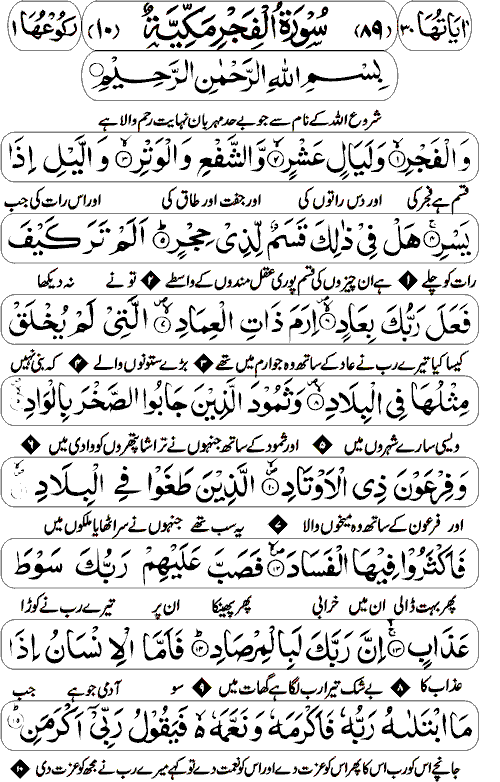 اٰیَاتُهَا ۳۰ (۸۹) سُوْرَةُ الْفَجْرِ مَكِّیَّةٌ (۱۰) رُكُوْعُهَا ۱
بِسْمِ اللّٰهِ الرَّحْمٰنِ الرَّحِیْمِ
شروع اللہ کے نام سے جو بے حد مہربان نہایت رحم والا ہے
وَ الْفَجْرِ ۱ وَ لَیَالٍ عَشْرٍ ۲ وَّ الشَّفْعِ وَ الْوَتْرِ ۳ وَ الَّیْلِ اِذَا
قسم ہے فجر کی اور دس راتوں کی اور جفت اور طاق کی اور اس رات کی جب
یَسْرِ ۴ هَلْ فِیْ ذٰلِكَ قَسَمٌ لِّذِیْ حِجْرٍ ۵ اَلَمْ تَرَ كَیْفَ
رات کو چلے ۱ ہے ان چیزوں کی قسم پوری عقل مندوں کے واسطے ۲ تو نے نہ دیکھا
فَعَلَ رَبُّكَ بِعَادٍ ۶ اِرَمَ ذَاتِ الْعِمَادِ ۷ الَّتِیْ لَمْ یُخْلَقْ
کیسا کیا تیرے رب نے عاد کے ساتھ وہ جو ارم میں تھے ۳ بڑے ستونوں والے ۴ کہ بنی نہیں
مِثْلُهَا فِی الْبِلَادِ ۸ وَ ثَمُوْدَ الَّذِیْنَ جَابُوا الصَّخْرَ بِالْوَادِ
ویسی سارے شہروں میں ۵ اور ثمود کے ساتھ جنہوں نے تراشا پتھروں کو وادی میں ۶
وَ فِرْعَوْنَ ذِی الْاَوْتَادِ ۱۰ الَّذِیْنَ طَغَوْا فِی الْبِلَادِ
اور فرعون کے ساتھ وہ میخوں والا ۷ یہ سب تھے جنہوں نے سر اٹھایا ملکوں میں
فَاَكْثَرُوْا فِیْهَا الْفَسَادَ ۱۲ فَصَبَّ عَلَیْهِمْ رَبُّكَ سَوْطَ
پھر بہت ڈالی ان میں خرابی پھر پھینکا ان پر تیرے رب نے کوڑا
عَذَابٍ ۱۳ اِنَّ رَبَّكَ لَبِالْمِرْصَادِ ۱۴ فَاَمَّا الْاِنْسَانُ اِذَا
عذاب کا ۸ بے شک تیرا رب لگا ہے گھات میں ۹ سو آدمی جو ہے جب
مَا ابْتَلٰىهُ رَبُّهٗ فَاَكْرَمَهٗ وَ نَعَّمَهٗ ۙ۬ فَیَقُوْلُ رَبِّیْۤ اَكْرَمَنِ ۱۵
جانچے اس کو رب اس کا پھر اس کو عزت دے اور اس کو نعمت دے تو کہے میرے رب نے مجھ کو عزت دی ۱۰